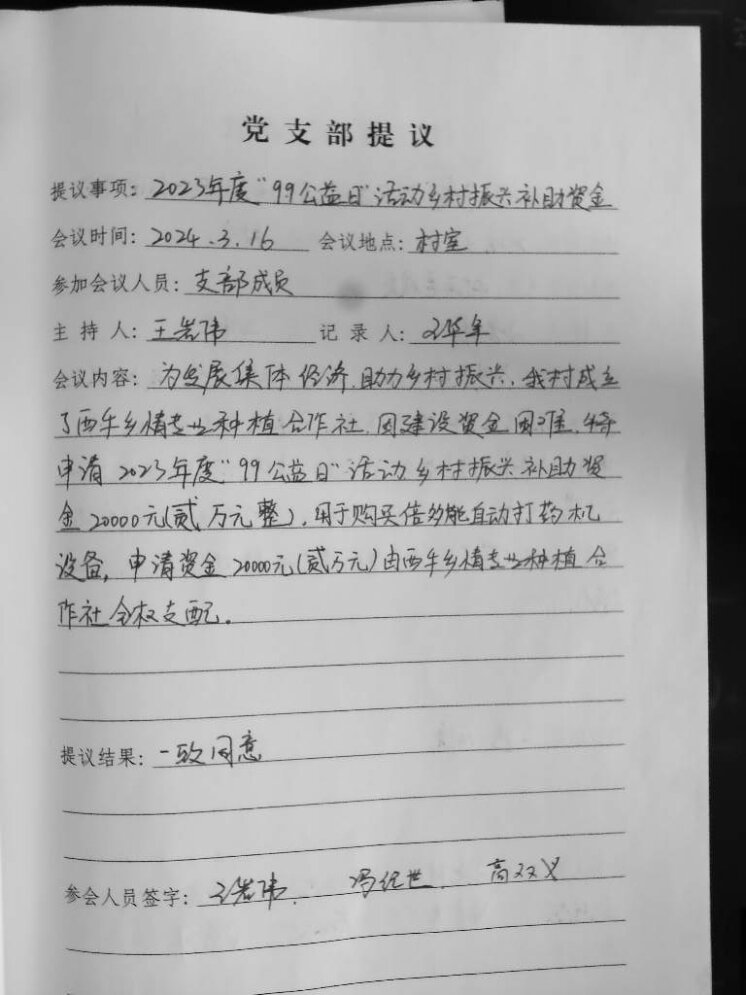 党支部提议
提议事项：2023年度“99公益日”活动乡村振兴补助资金
会议时间：2024.3.16 会议地点：村室
参加会议人员：支部成员
主持人：王岩伟 记录人：王华年
会议内容：为发展集体经济，助力乡村振兴，我村成立
了西牛乡情专业种植合作社，因建设资金困难，特
申请2023年度“99公益日”活动乡村振兴补助资
金20000元(贰万元整)，用于购买倍多能自动打药机
设备，申请资金20000元(贰万元)由西牛乡情专业种植合
作社全权支配。
提议结果：一致同意
参会人员签字：王岩伟. 冯纪世. 高双义